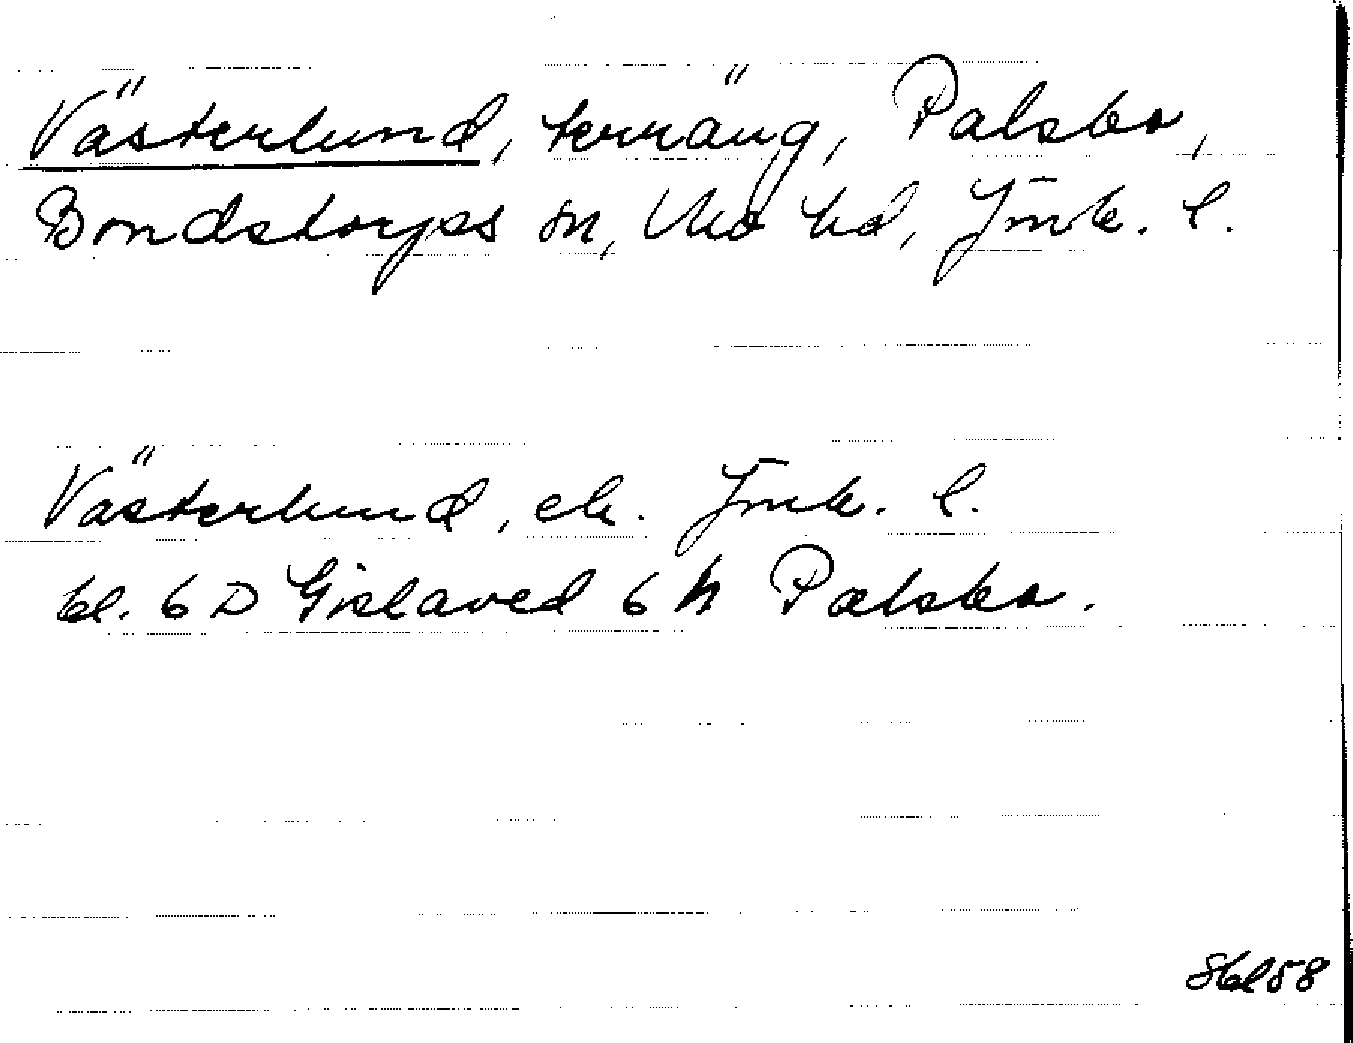 Västerlund, terräng, Palsbo,
Bondstorps sn, Mo hd, Jönk. l.
Västerlund, ek. Jönk. l.
bl. 6 D Gislaved 6 h Palsbo.